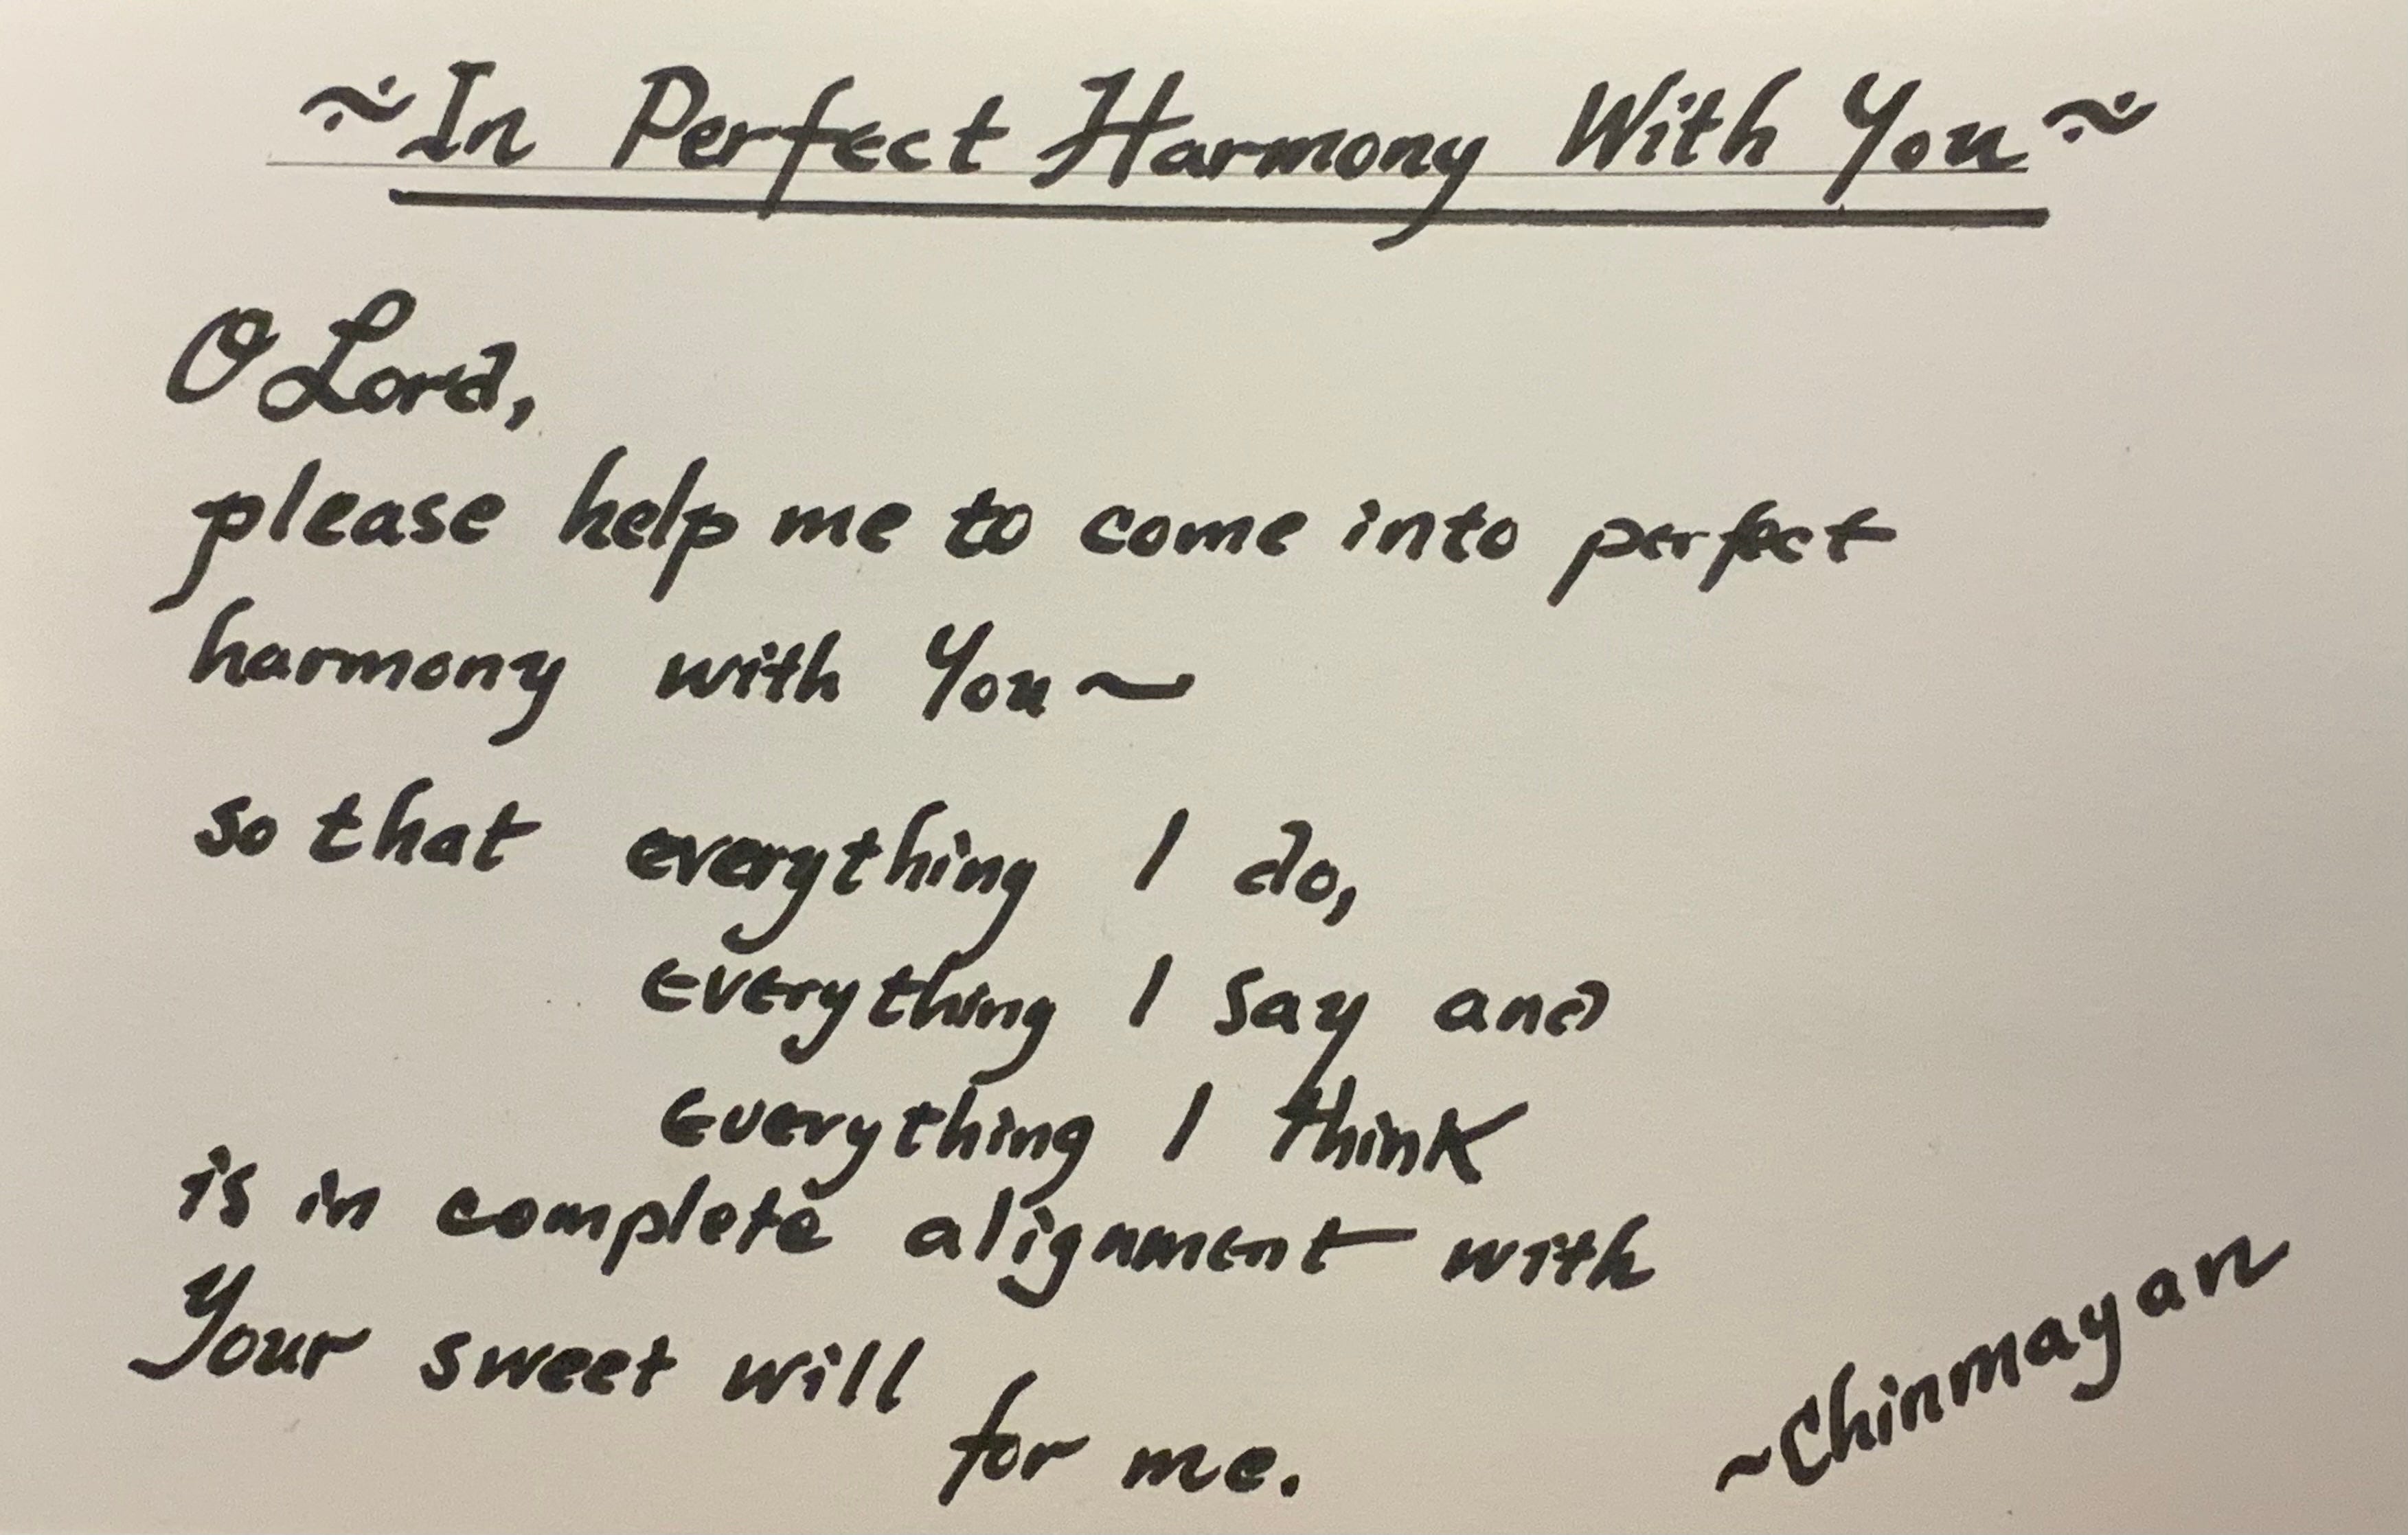 ~In Perfect Harmony With You~
O Lord,
please help me to come into perfect
harmony with You~
so that everything I do,
everything I say and
everything I think
is in complete alignment with
Your sweet will
for me.
~Chinmayan